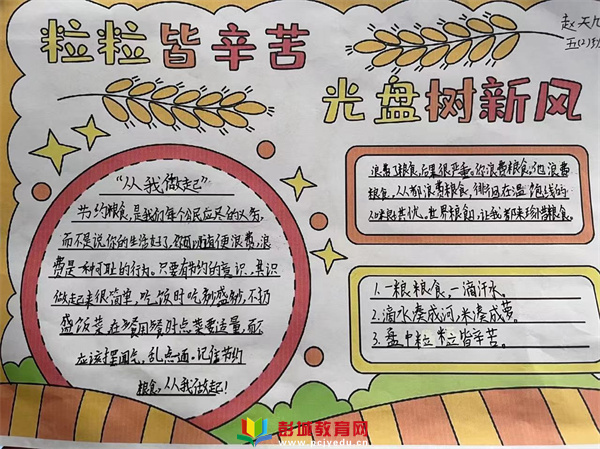 粒粒皆辛苦
光盘树新风
赵天
五(2)班
“从我做起”
节约粮食,是我们每个公民应尽的义务,
而不是说你的生活好了,你可以随便浪费,浪
费是一种可耻的行为。只要有节约的意识,其识
做起来很简单,吃饭时吃多少盛多少,不扔
盛饭菜,在餐用餐时点菜要适量,而不
应该摆面子,乱点一通。记住节约
粮食,从我做起!
浪费了粮食,后果很严重。你浪费粮食,他浪费
粮食,人人都浪费粮食,徘徊在温饱线的
世界粮食日,让我们都来珍惜粮食。
1.一粮粮食,一滴汗水。
2.滴水凑成河,米凑成箩。
3.盘中粒粒皆辛苦。
彭城教育网
www.pcjyedu.cn